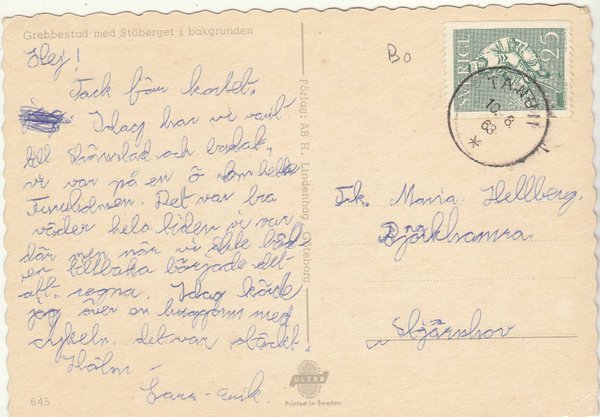 Grebbestad med Stöberget i bakgrunden
Hej!
Tack för kortet.
Idag har vi varit
till Strömstad och badat.
vi var på en ö som hette
Det var bra
väder hela tiden vi var
där men när vi åkte båd
en tillbaka började det
att regna. Idag körde
jag över en huggorm med
cykeln. det var
Lars-erik.
645
Förlag: AB H. Lindenhag, Göteborg
ULTRA
Printed in Sweden
Bo
SVERIGE
25
10 8
63
Frk. Maria Hellberg.
Björkhamra.
Stjärnhov